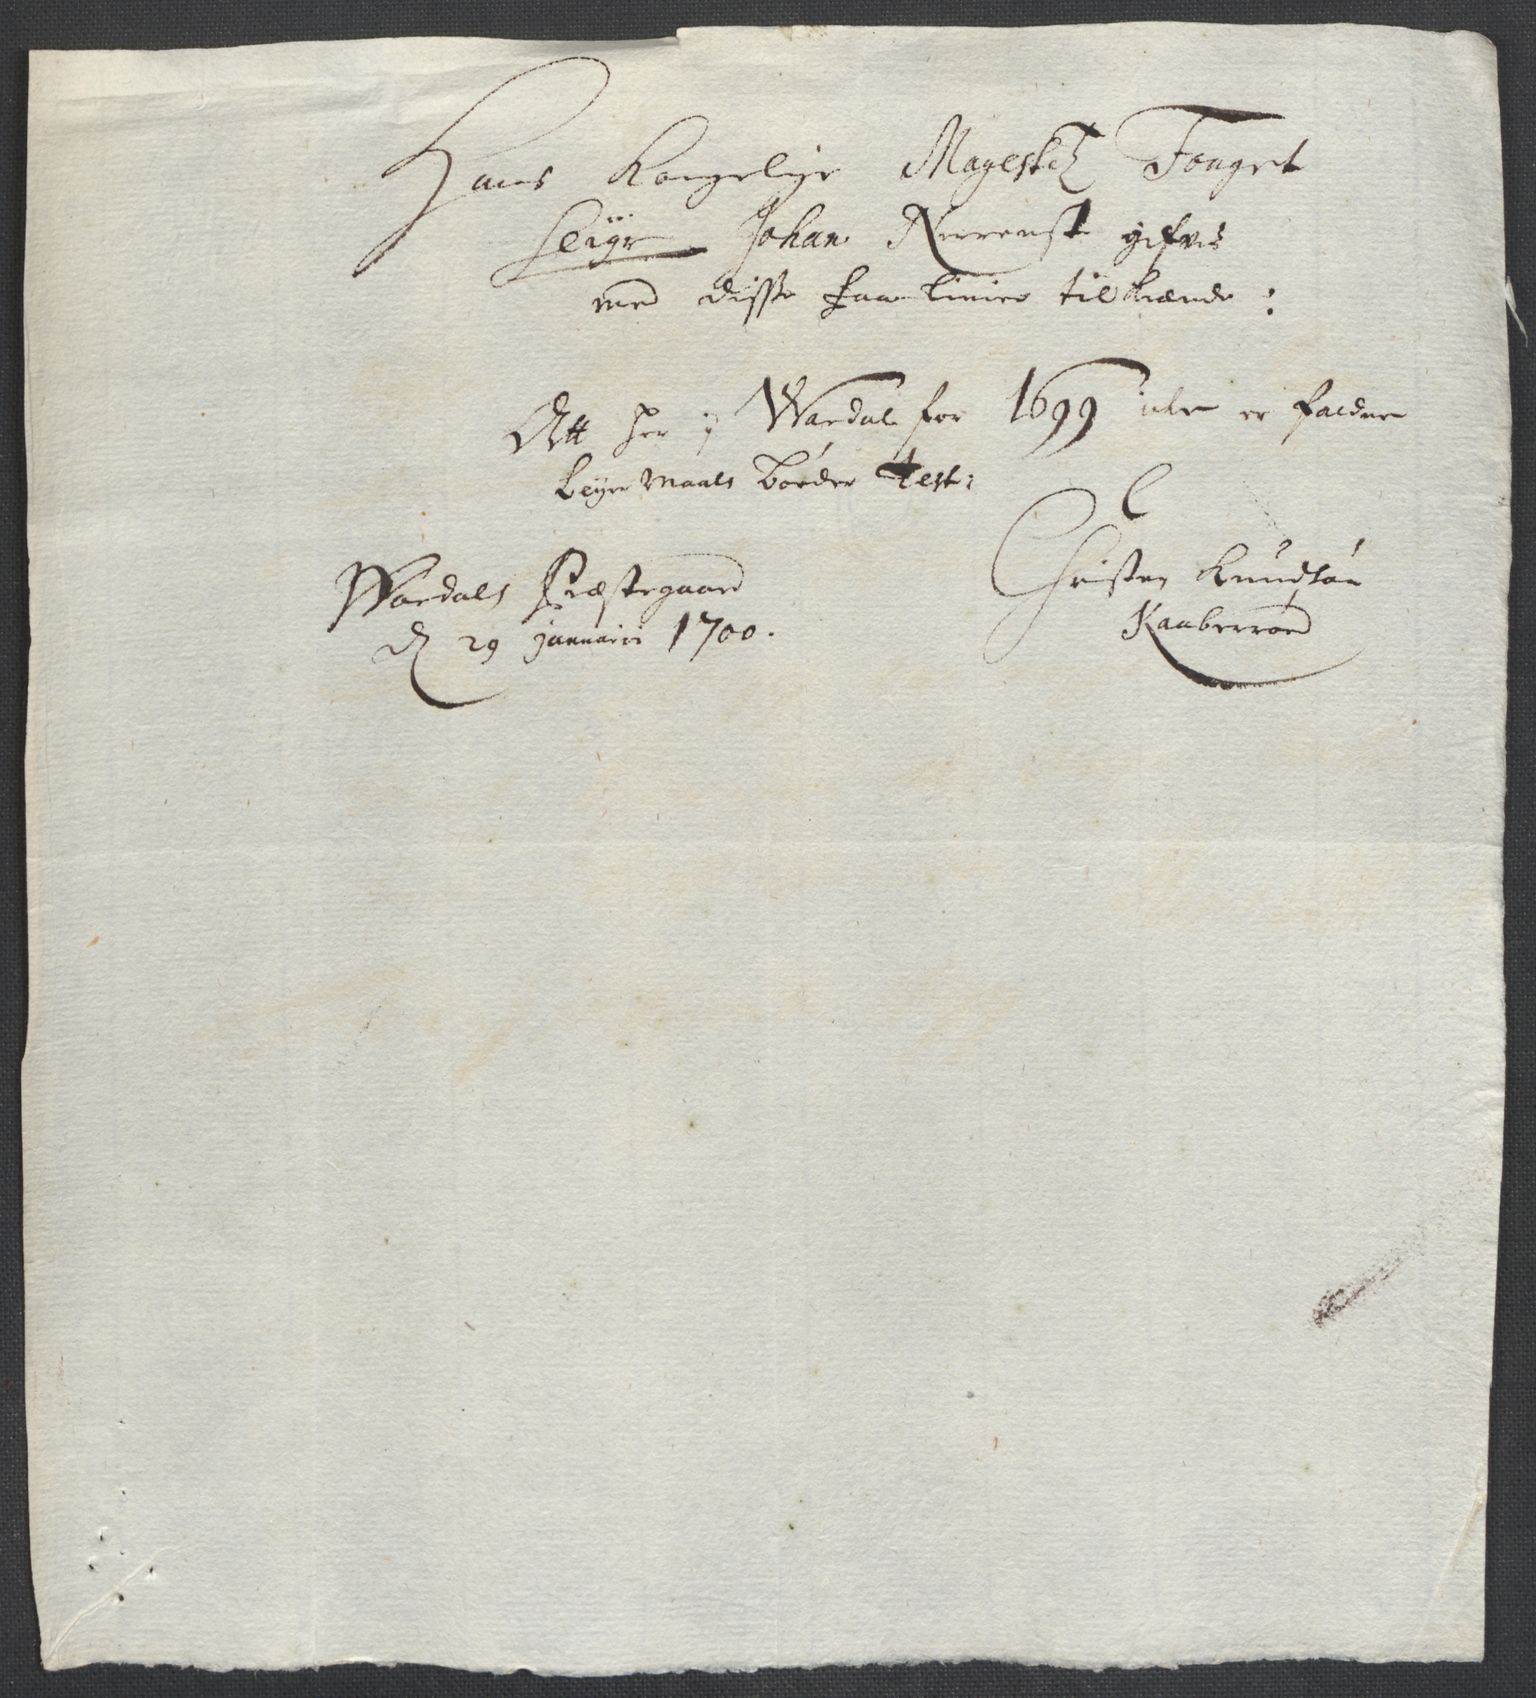 Hans Kongelige Mayestetz Fouget
Seigr Johan Nerrenst gifvis
med disse faa linier tilkiende:
Att her j Wærdal for 1699 icke er faldne
Leyermaals Bøder Test:
Wærdals Præstegaard
d 29 januarii 1700.
Christen Knudsøn